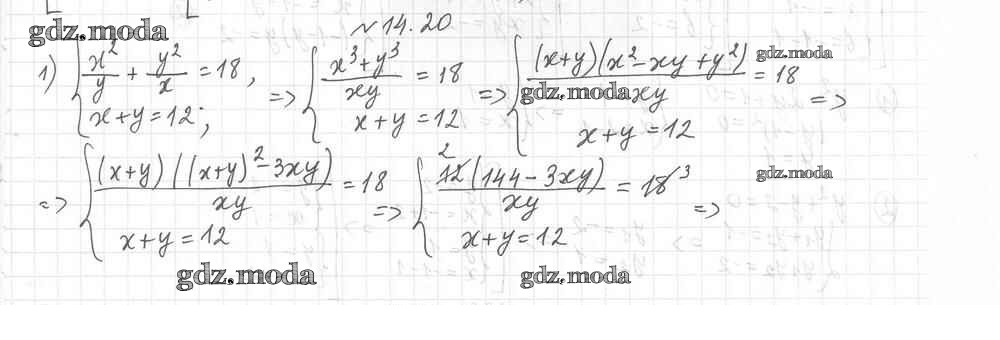 gdz.moda
№ 14.20
1) { x²/y + y²/x = 18, => { (x³+y³)/xy = 18 => { (x+y)(x²-xy+y²)/xy = 18 =>
x+y=12; x+y=12 x+y=12
gdz.moda
gdz.moda
=> { (x+y)((x+y)²-3xy)/xy = 18 => { 12 2 (144-3xy)/xy = 18 3 =>
x+y=12 x+y=12
gdz.moda
gdz.moda
gdz.moda